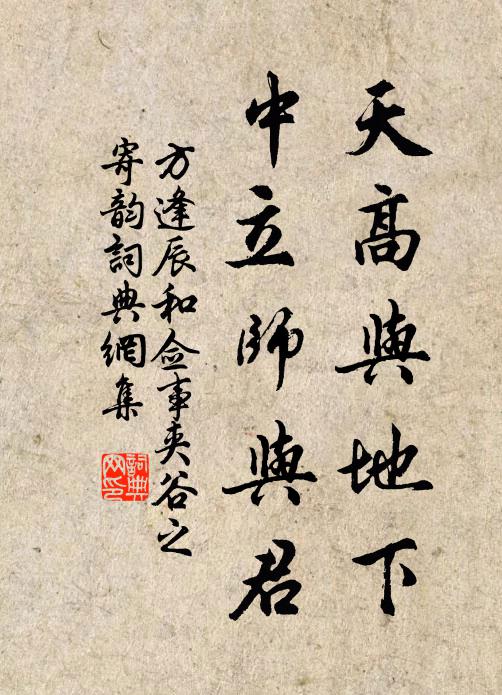 天高與地下
中立師與君
方逢辰和僉事夾谷之
寄韵詞典網集
詞典網印